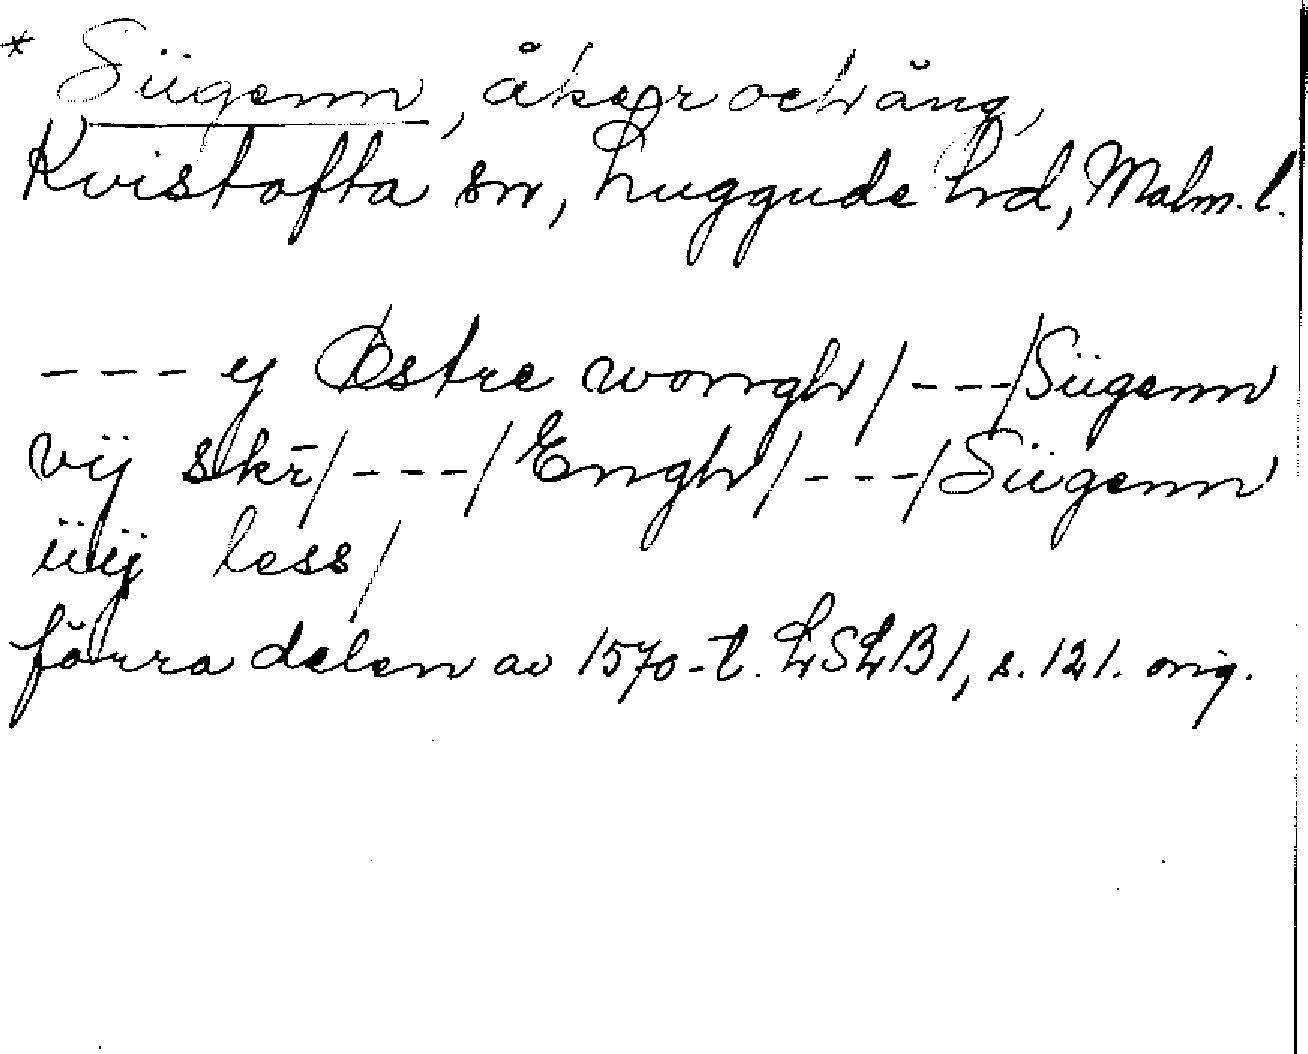 * Siigenn, åker och äng,
Kvistofta sn, Luggude hd, Malm. l.
--- y Østre wonngh/---/Siigenn
vij skr̄/---/Enngh/---/Siigenn
iiij less/
förra delen av 1570-t. LSLB1, s. 121. orig.